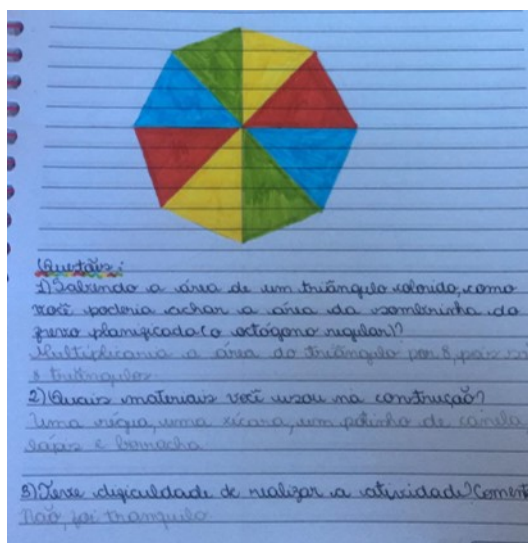 Questões:
1) Sabendo a área de um triângulo colorido, como
você poderia achar a área da sombrinha do
frevo planificada (o octógono regular)?
Multiplicaria a área do triângulo por 8, pois são
8 triângulos
2) Quais materiais você usou na construção?
Uma régua, uma xícara, um potinho de canela
lápis e borracha
3) Teve dificuldade de realizar a atividade? Coment
Não, foi tranquilo